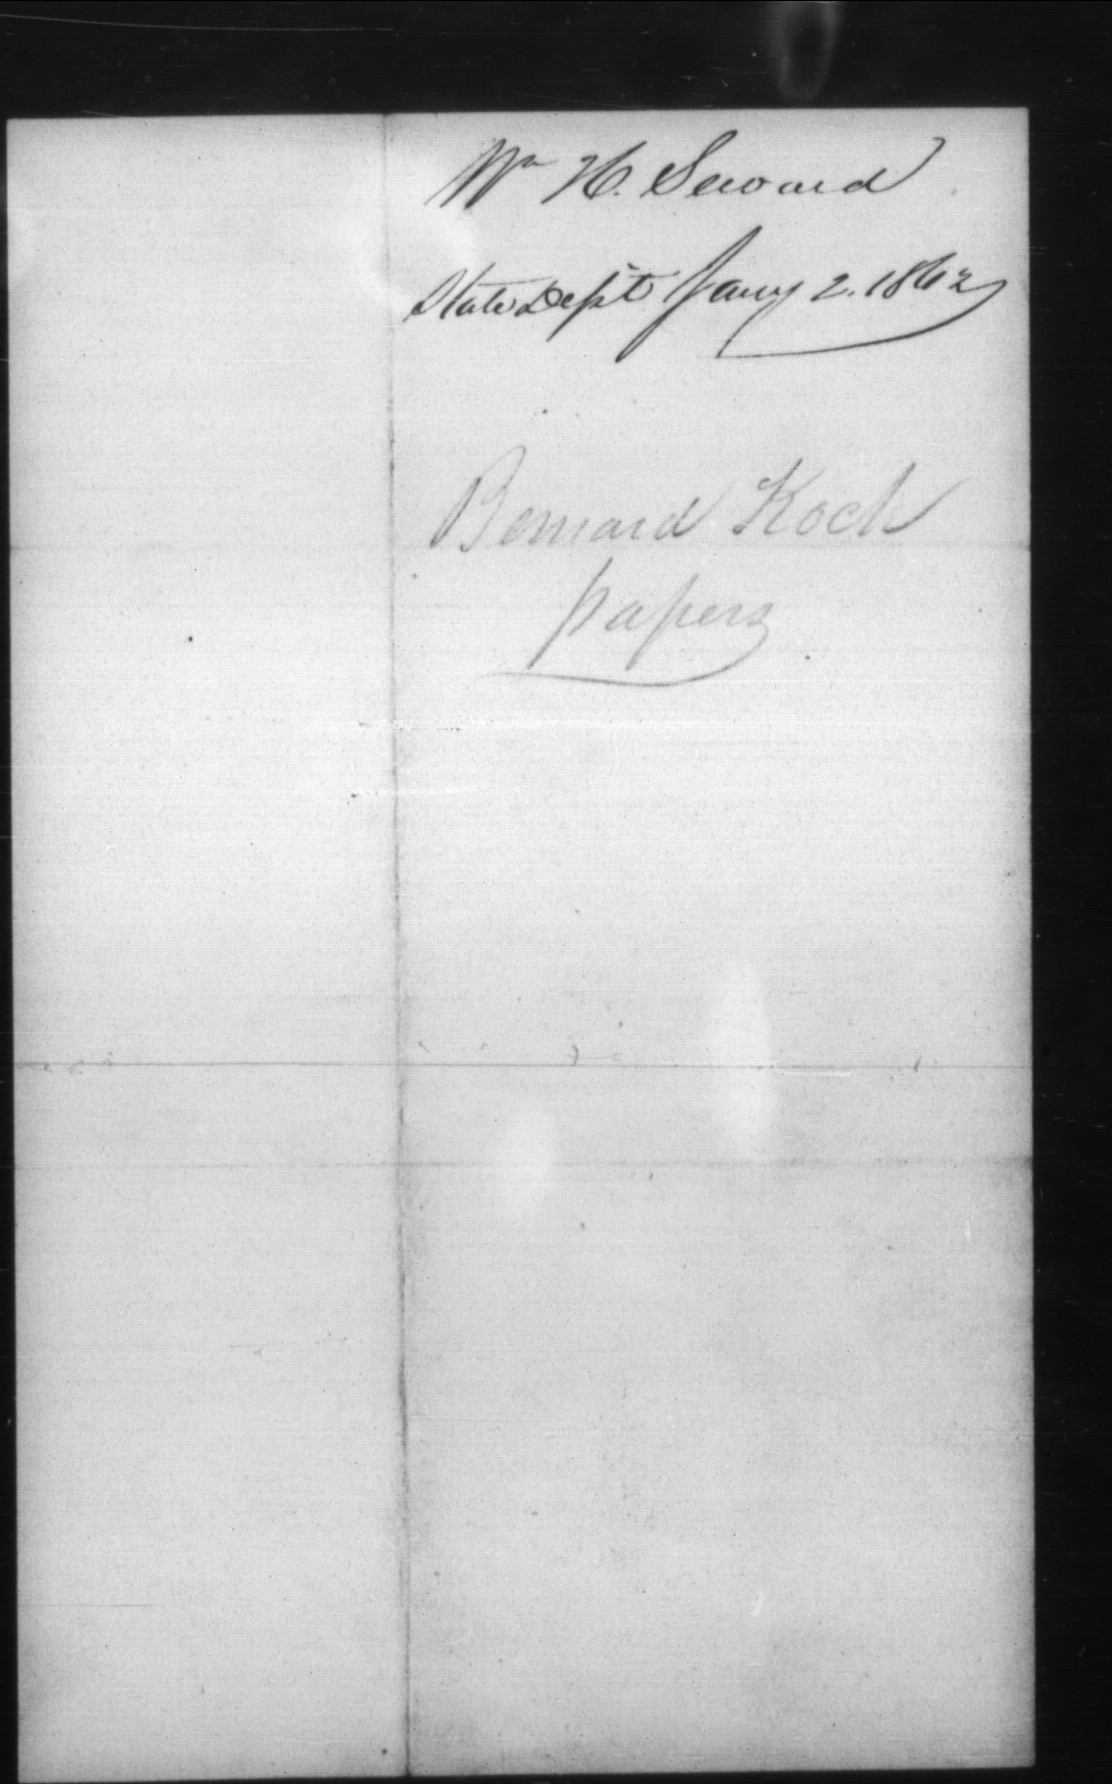 Wm H. Seward
State Dept Jany 2. 1862
Bernard Kock
papers